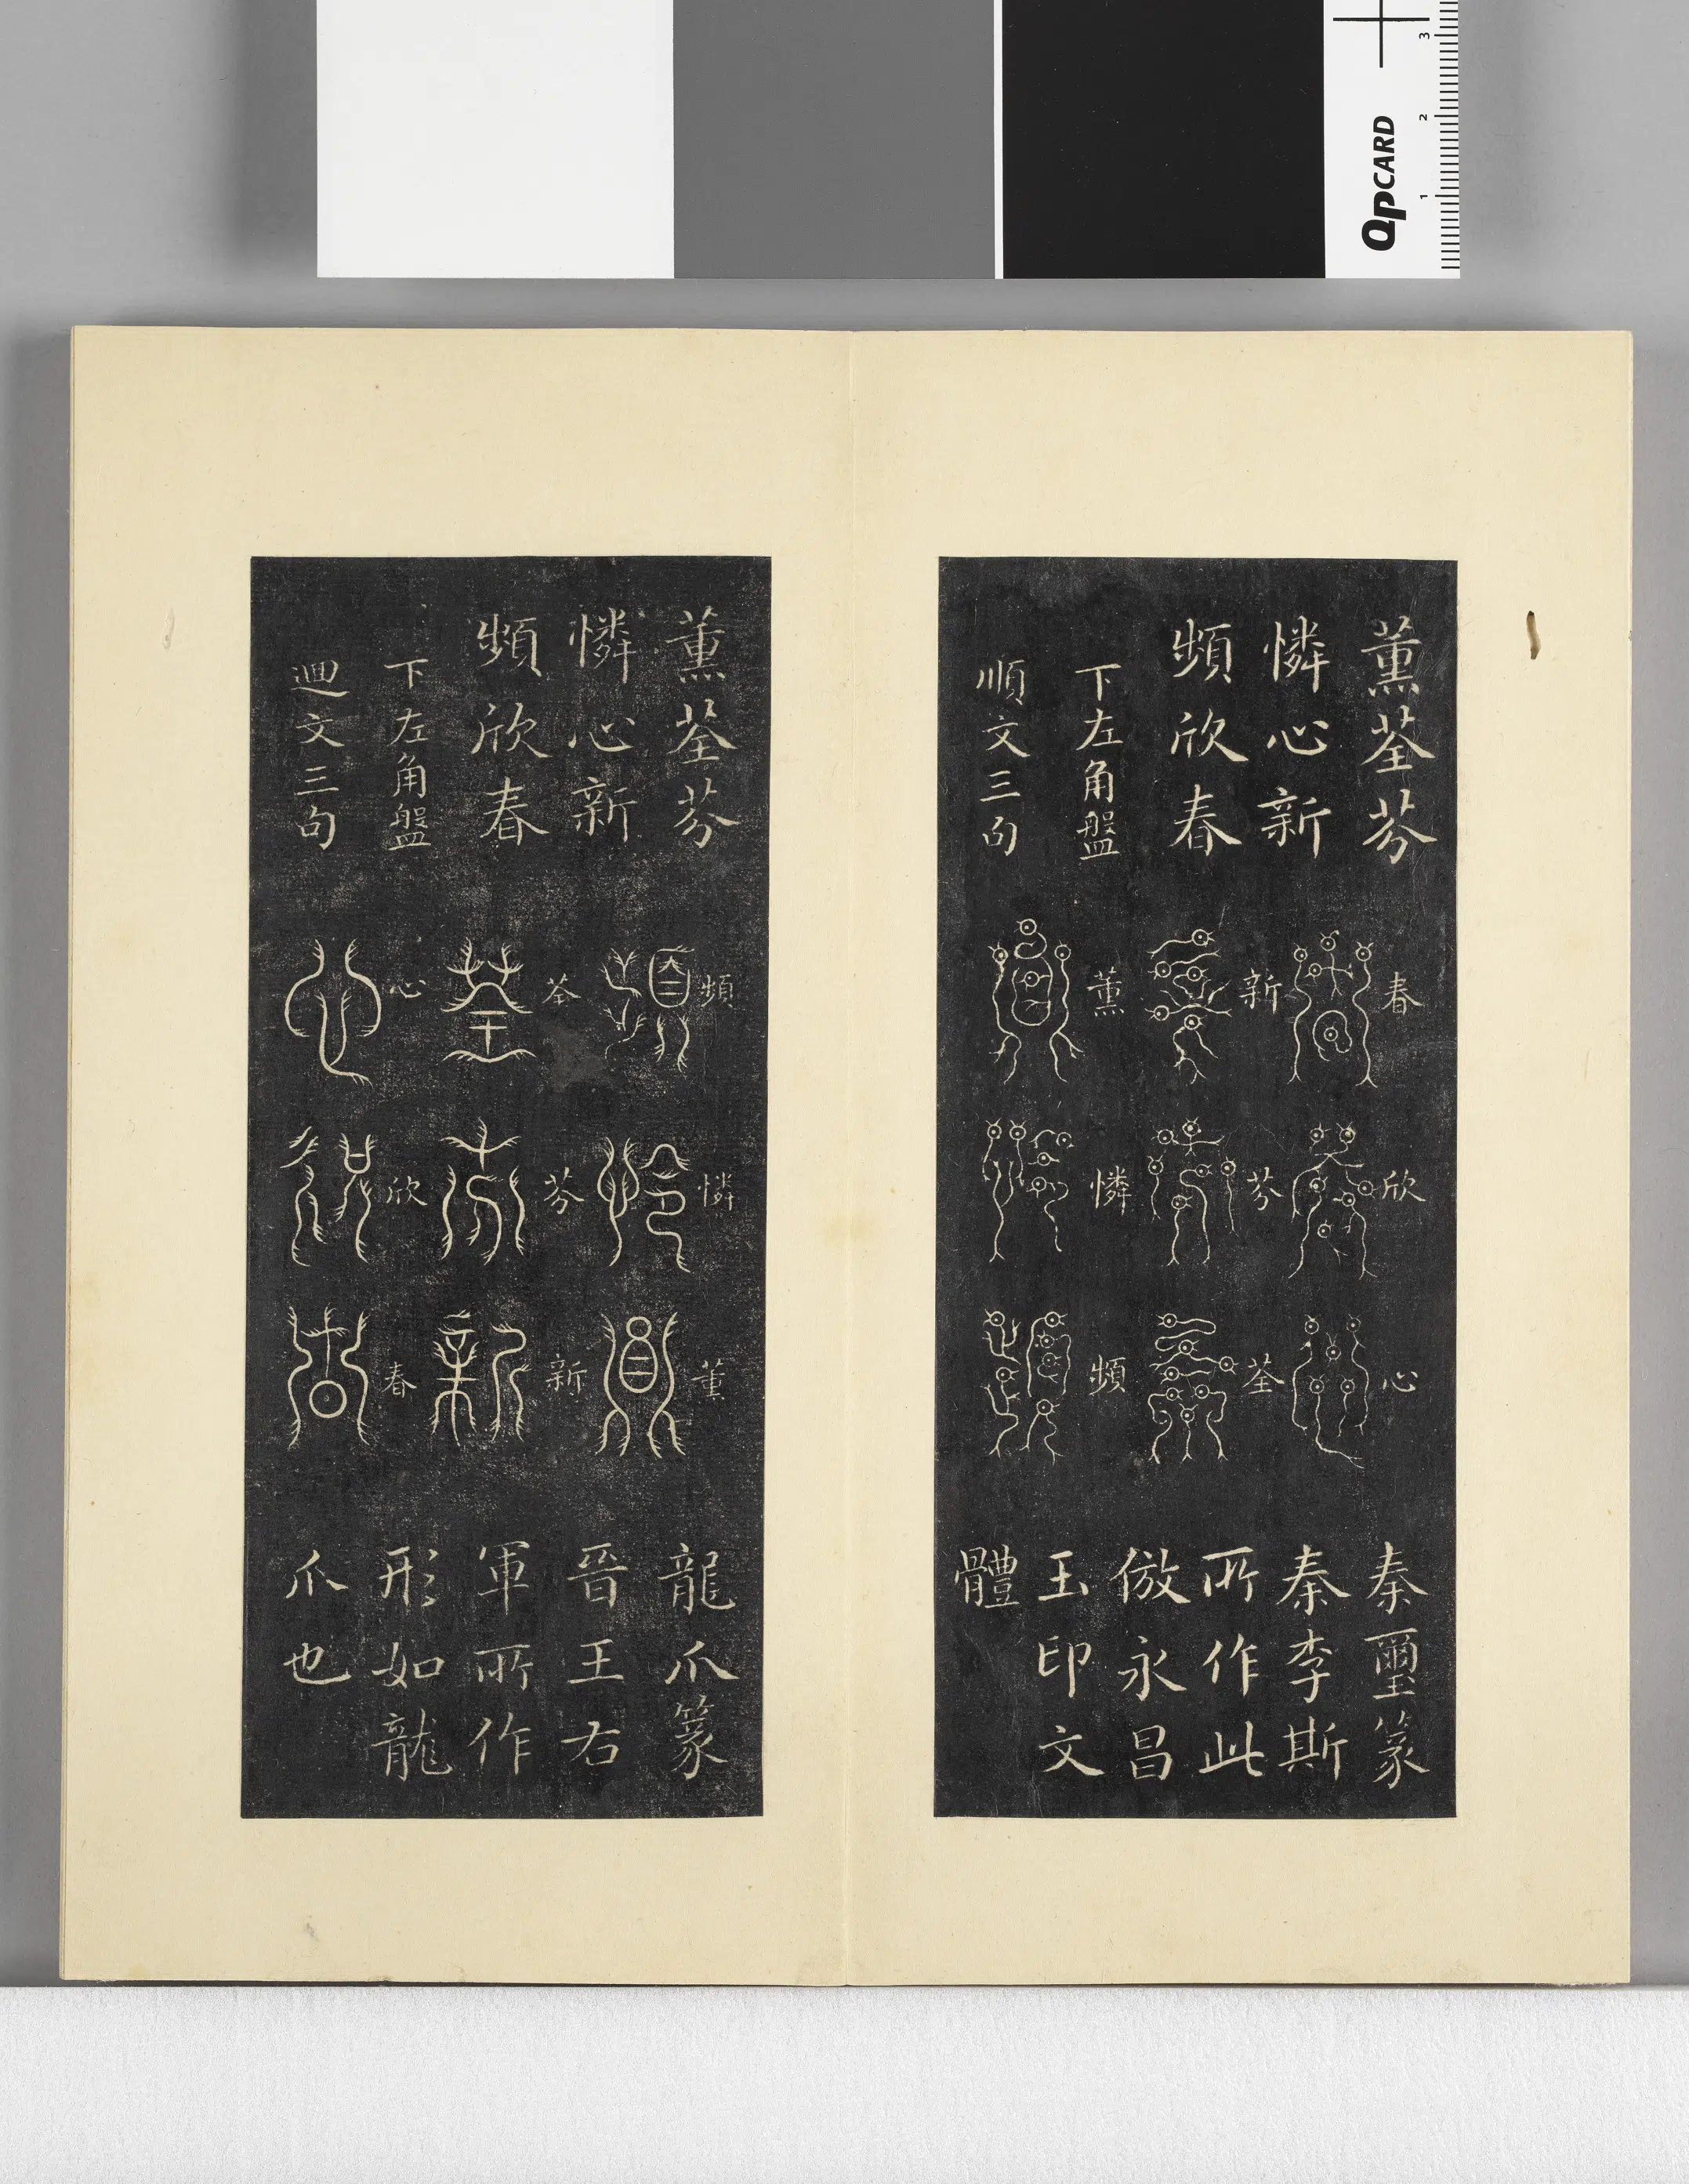 QPCARD
1 2 3
薰荃芬
憐心新
頻欣春
下左角盤
順文三句
春
欣
心
新
芬
荃
薰
憐
頻
秦璽篆
秦李斯
所作此
倣永昌
玉印文
體
薰荃芬
憐心新
頻欣春
下左角盤
迴文三句
頻
憐
薰
荃
芬
新
心
欣
春
龍爪篆
晉王右
軍所作
形如龍
爪也